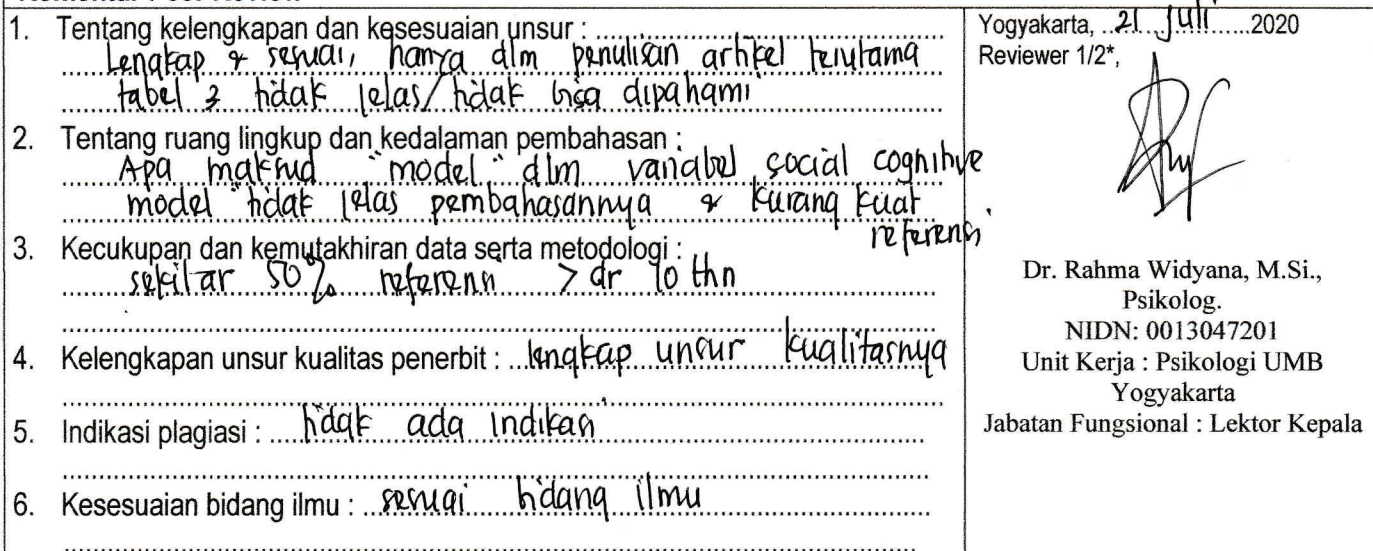 1. Tentang kelengkapan dan kesesuaian unsur :
Lengkap & sesuai, hanya dlm penulisan artikel terutama
tabel 3 tidak jelas/tidak bisa dipahami
2. Tentang ruang lingkup dan kedalaman pembahasan :
Apa maksud "model" dlm variabel social cognitive
model tidak jelas pembahasannya & kurang kuat
referensi
3. Kecukupan dan kemutakhiran data serta metodologi :
sekitar 50% referensi > dr 10 thn
4. Kelengkapan unsur kualitas penerbit : lengkap unsur kualitasnya
5. Indikasi plagiasi : tidak ada indikasi
6. Kesesuaian bidang ilmu : sesuai bidang ilmu
Yogyakarta, 21 Juli 2020
Reviewer 1/2*,
Dr. Rahma Widyana, M.Si.,
Psikolog.
NIDN: 0013047201
Unit Kerja : Psikologi UMB
Yogyakarta
Jabatan Fungsional : Lektor Kepala